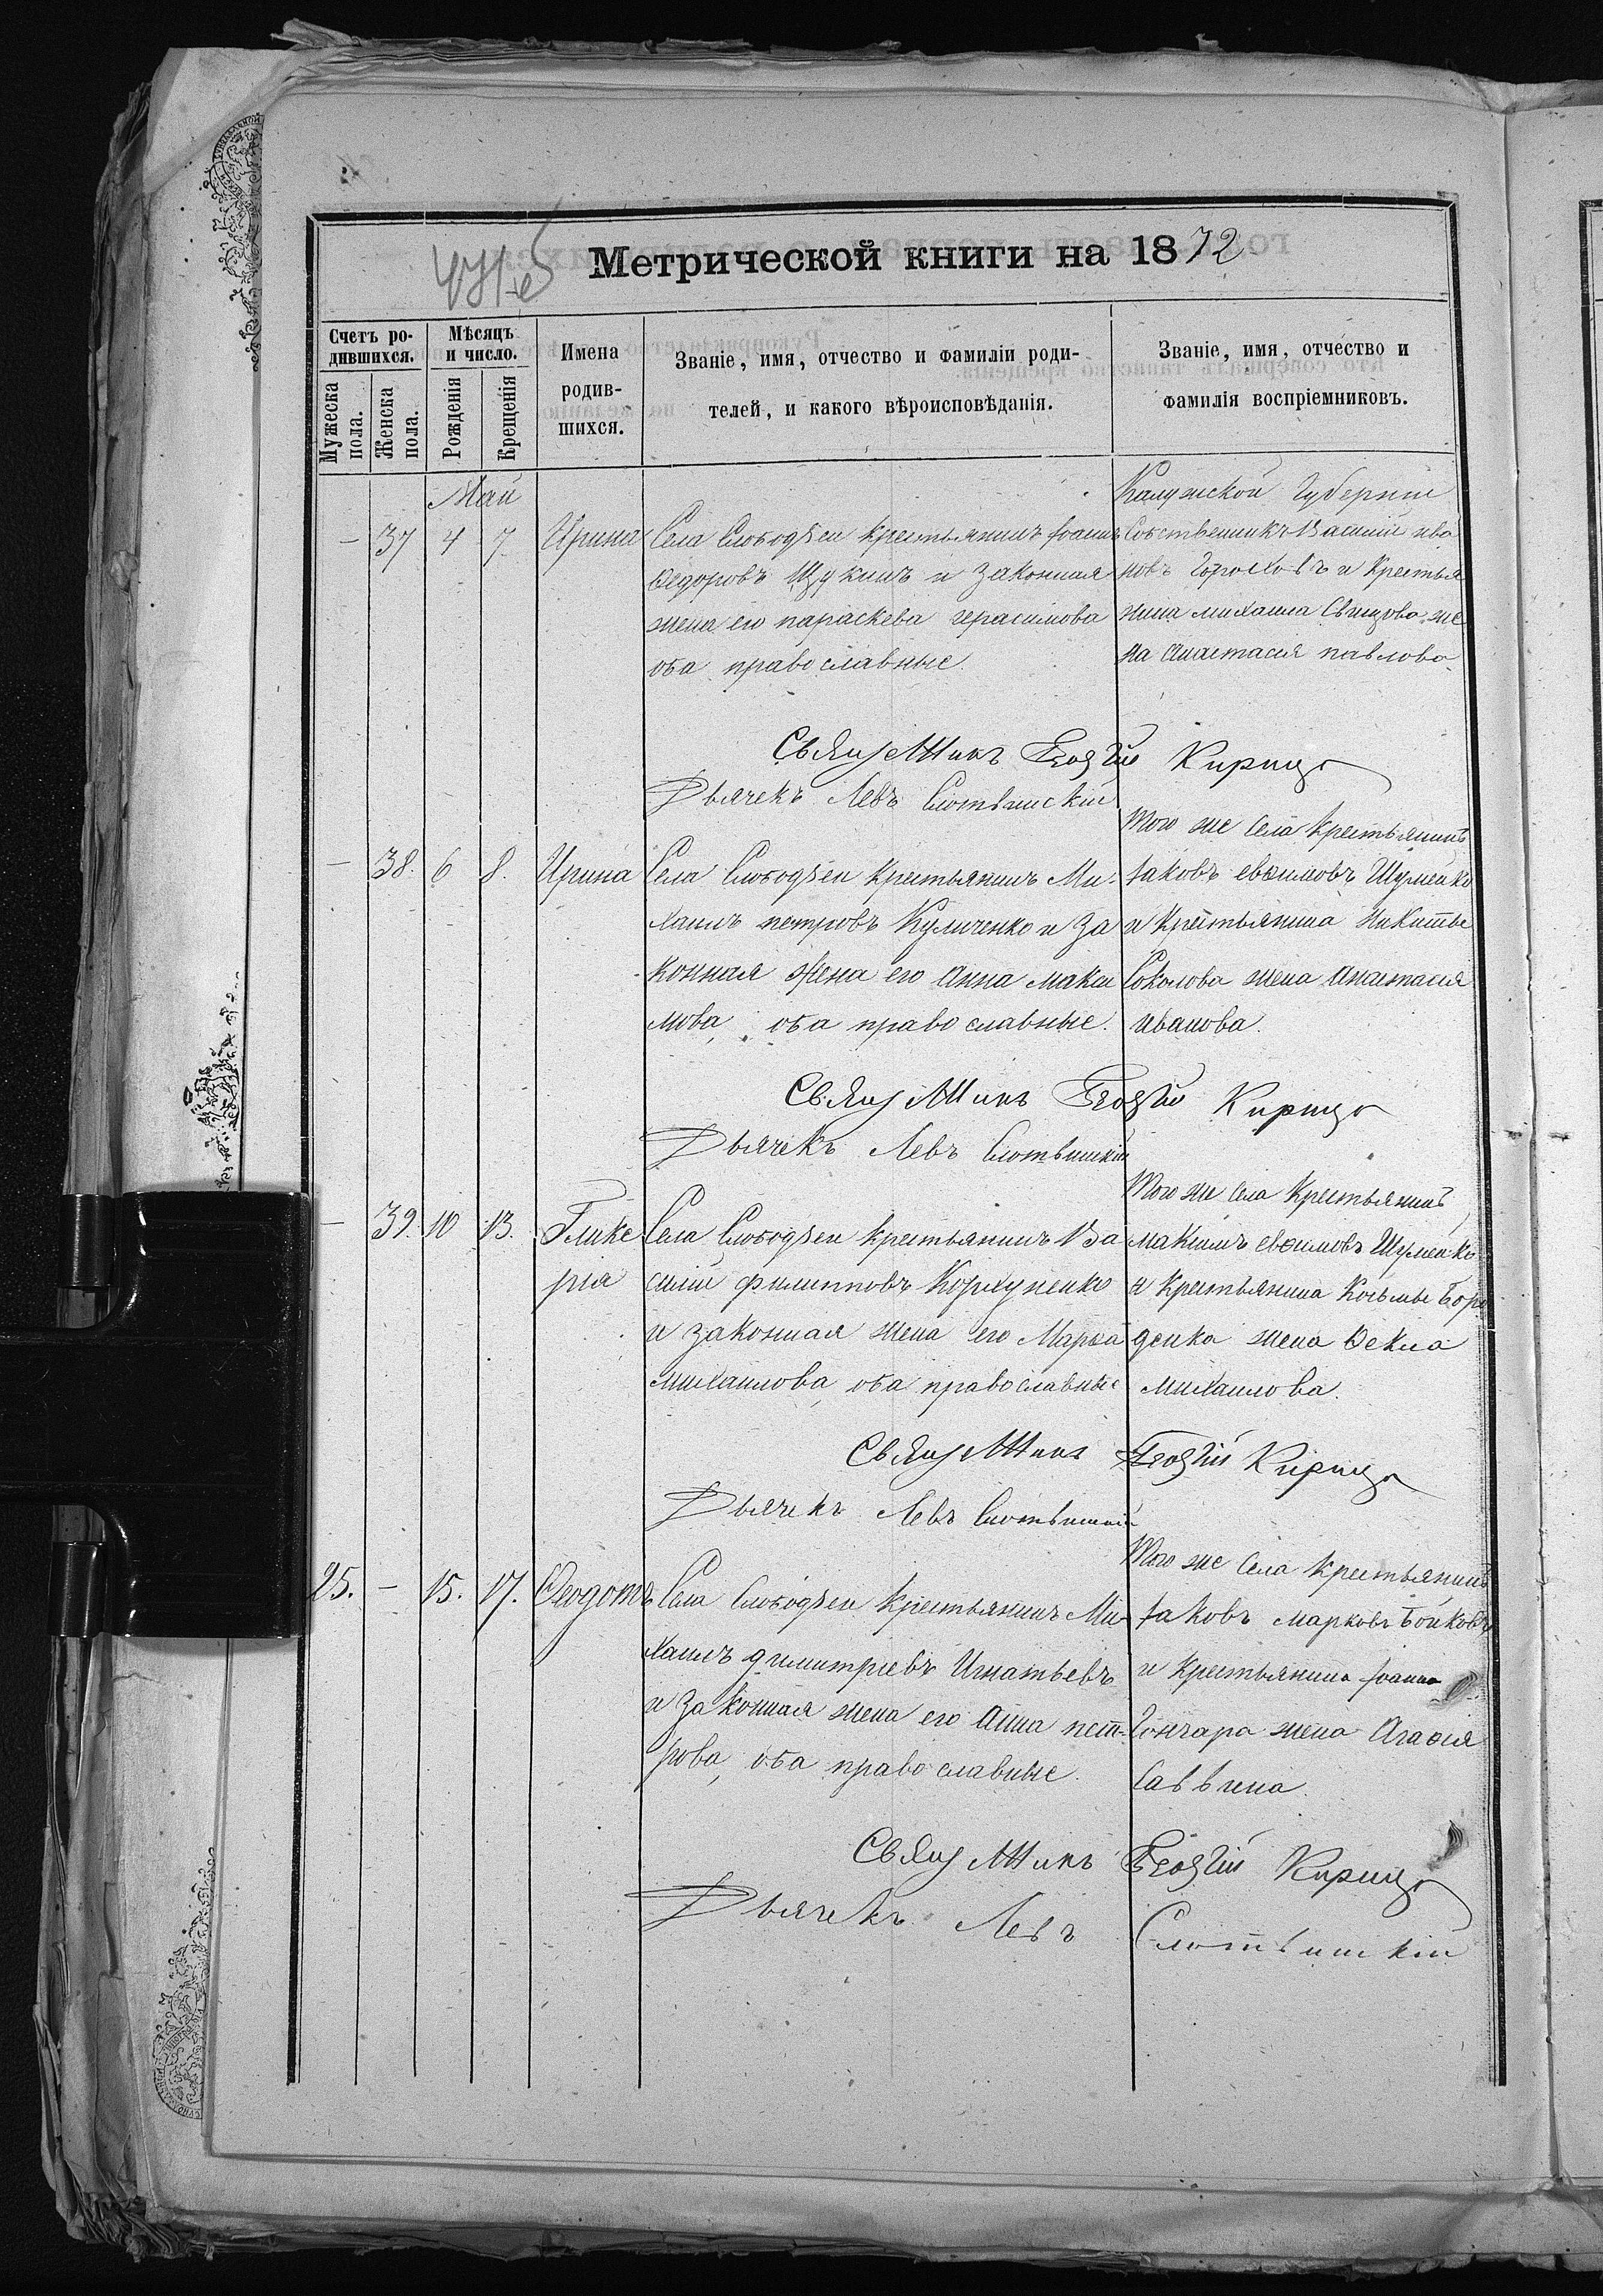 Метрической книги на 1872
Счетъ ро-
дившихся.
Мѣсяцъ
и число.
Имена
родив-
шихся.
Званіе, имя, отчество и фамиліи роди-
телей, и какого вѣроисповѣданія.
Званіе, имя, отчество и
фамилія воспріемниковъ.
Мужеска
пола.
Женска
пола.
Рожденія
Крещенія
Май
— 37 4 7 Ирина
Села Слободзеи крестьянинъ Іоаннъ
Ѳедоровъ Щукинъ и законная
жена его параскева герасимова
оба православные.
Калужской Губерніи
Собственникъ Василій ива
новъ Гороховъ и крестья
нина михаила Сѣнцова же
на Анастасія павлова
Священникъ Георгій Кирица
Дьячекъ Левъ Слотвинскій
— 38. 6 8. Ирина
Села Слободзеи крестьянинъ Ми-
хаилъ петровъ Куличенко и за
конная жена его Анна макси
мова, оба православные.
Того же села крестьянинъ
Іаковъ евѳимовъ Шумейко
и крестьянина Никиты
Соколова жена Анастасія
иванова.
Священникъ Георгій Кирица
Дьячекъ Левъ Слотвинскій
— 39. 10 13. Глике
рія
Села Слободзеи крестьянинъ Ва
силій филипповъ Корхуненко
и законная жена его Марѳа
михаилова, оба православные
Того же села крестьянинъ
максимъ евѳимовъ Шумейко
и крестьянина Козьмы Боро
денка жена Ѳекла
михаилова.
Священникъ Георгій Кирица
Дьячекъ Левъ Слотвинскій
25. — 15. 17. Ѳеодотъ
Села Слободзеи крестьянинъ Ми-
хаилъ димитріевъ Игнатьевъ
и законная жена его Анна пет-
рова, оба православные.
Того же села крестьянинъ
Іаковъ марковъ Бойковъ
и крестьянина Іоанна
Гончара жена Агаѳія
Саввина.
Священникъ Георгій Кирица
Дьячекъ Левъ Слотвинскій